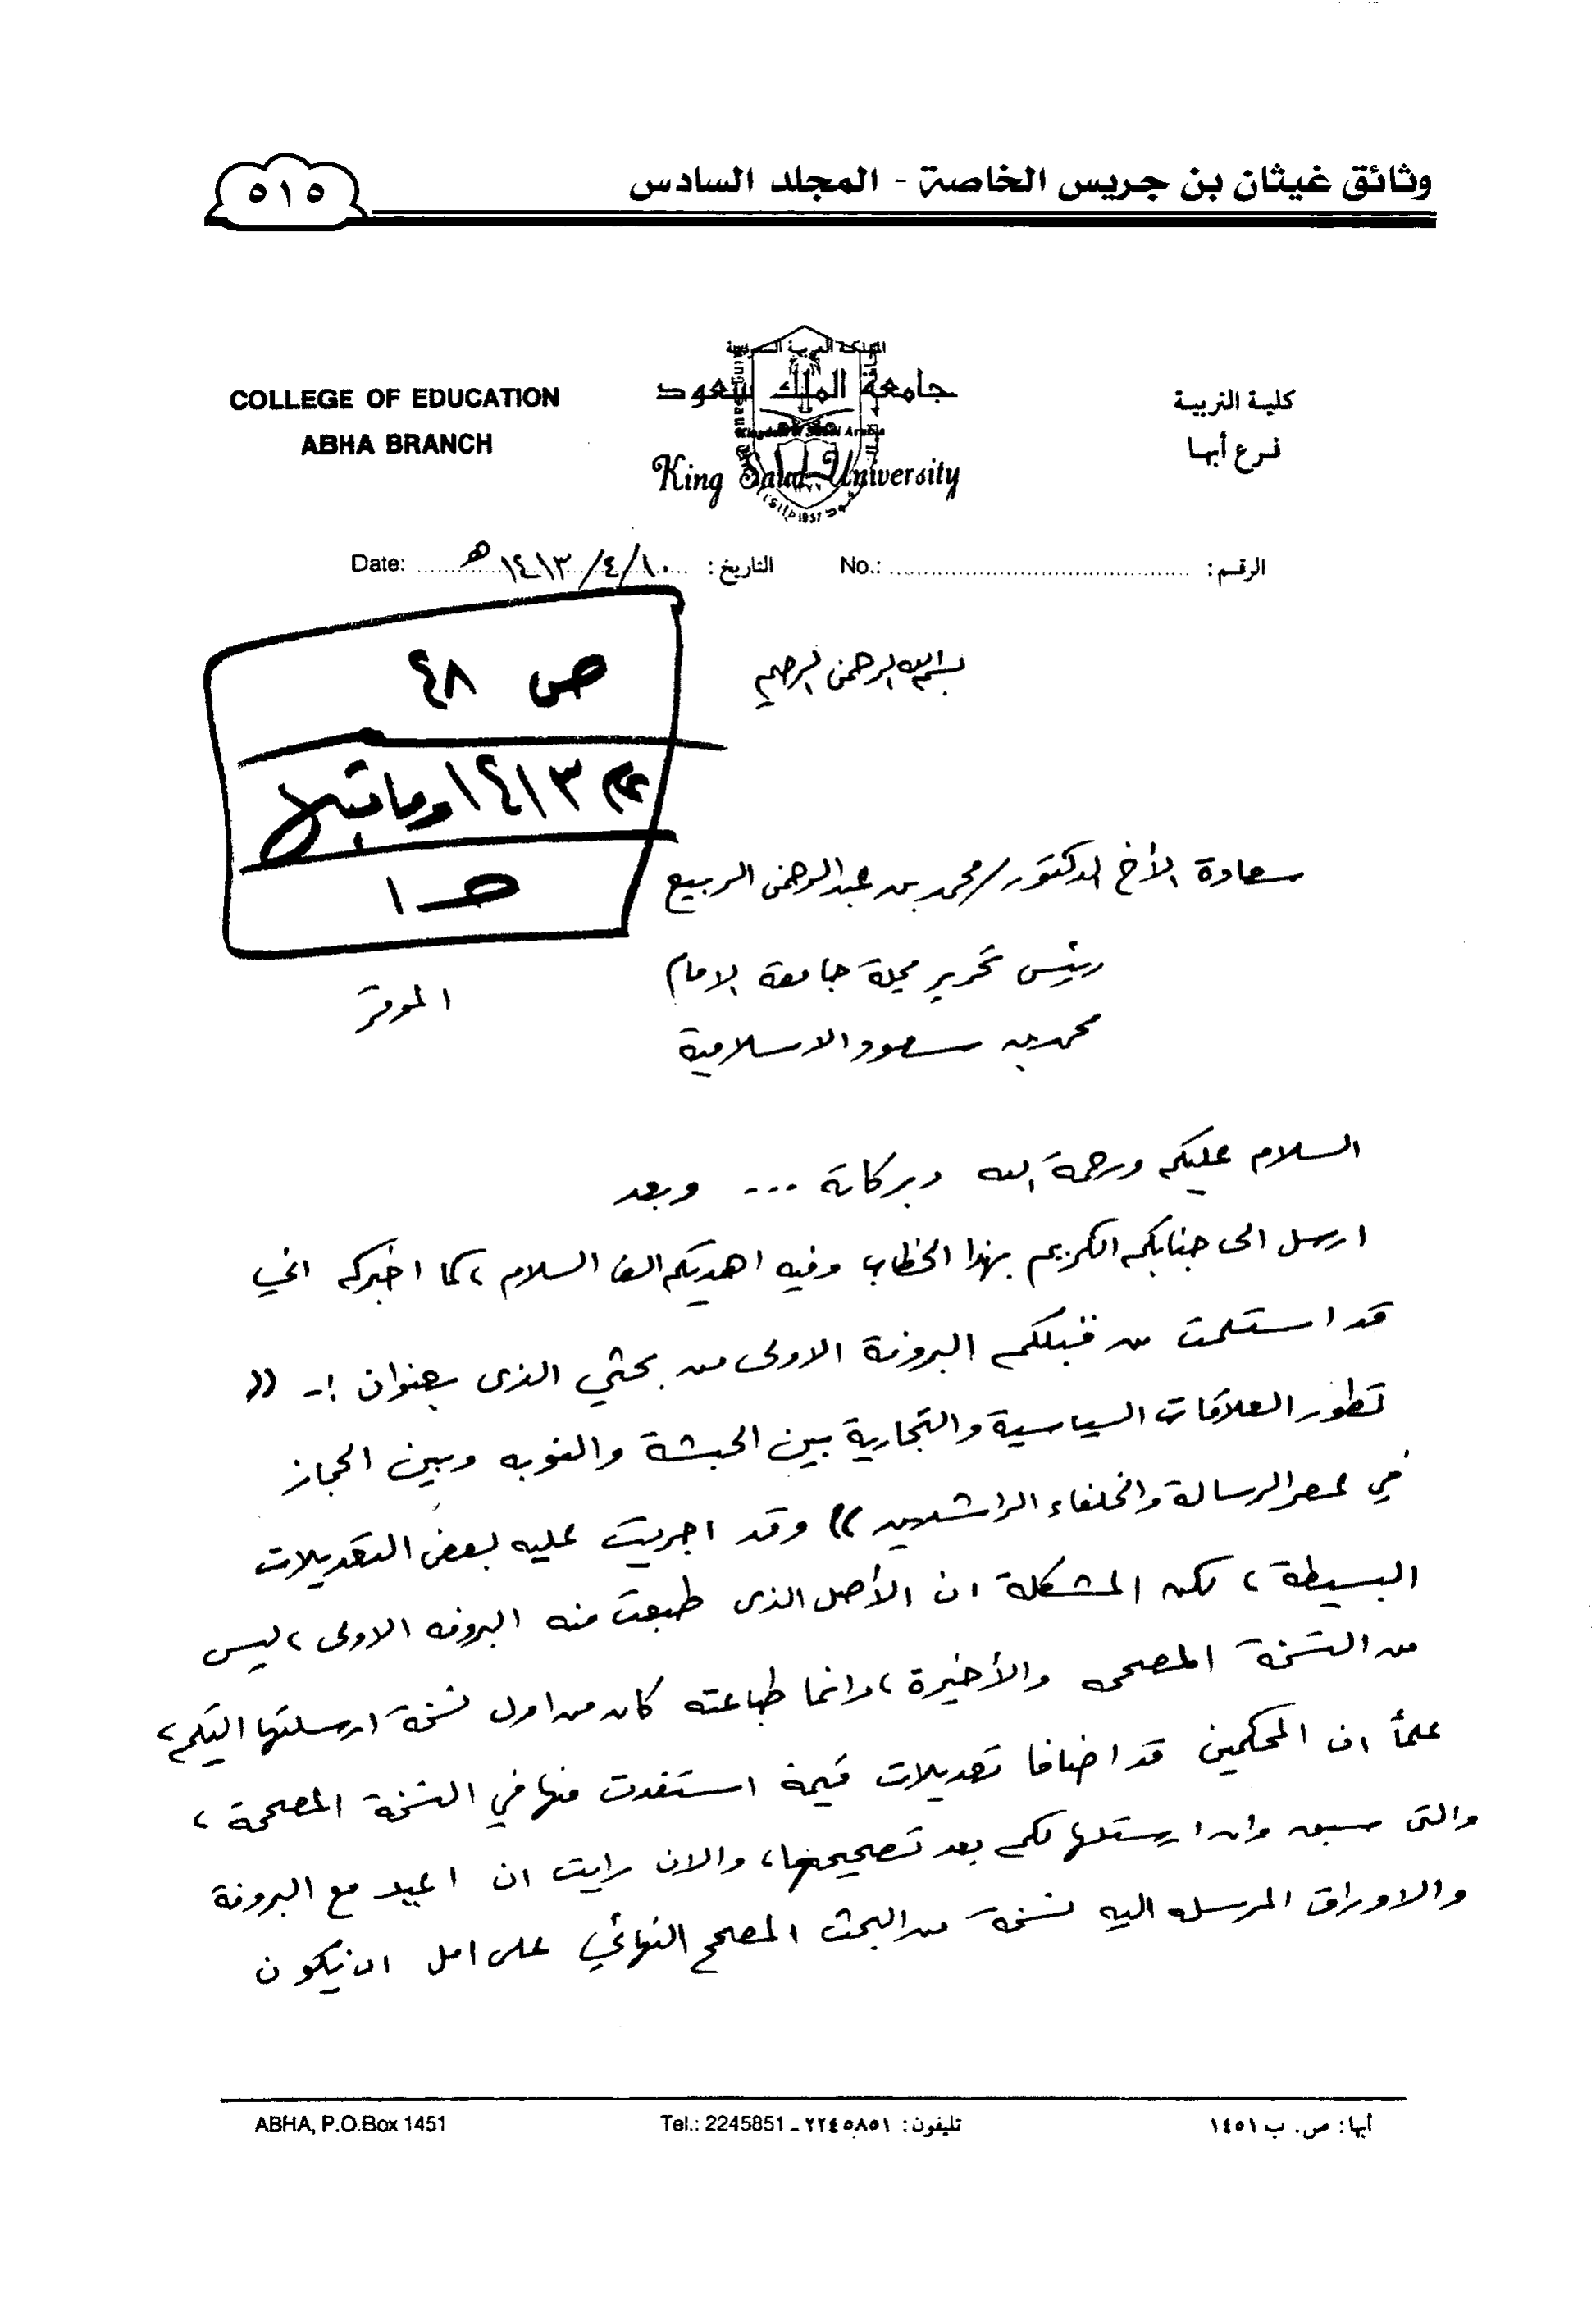 وثائق غيثان بن جريس الخاصة - المجلد السادس
٥١٥
COLLEGE OF EDUCATION
ABHA BRANCH
المملكة العربية السعودية
جامعة الملك سعود
Kingdom of Saudi Arabia
King Saud University
كلية التربية
فرع أبها
الرقم: No.:
التاريخ: ١٤١٣/٤/١٠ هـ Date:
ص ٤٨
١٤١٣ وما قبلها
ص ١
بسم الله الرحمن الرحيم
سعادة الأخ الدكتور/ محمد بن عبدالرحمن الربيع
رئيس تحرير مجلة جامعة الامام
محمد بن سعود الاسلامية
الموقر
السلام عليكم ورحمة الله وبركاته ... وبعد
ارسل الى جنابكم الكريم بهذا الخطاب وفيه اهديكم الف السلام، كما اخبركم اني
قد استلمت من قبلكم البروفة الاولى من بحثي الذى بعنوان :- ((
تطور العلاقات السياسية والتجارية بين الحبشة والنوبه وبين الحجاز
في عصر الرسالة والخلفاء الراشدين)) وقد اجريت عليه بعض التعديلات
البسيطة، لكن المشكلة ان الأصل الذى طبعت منه البروفه الاولى، ليس
من النسخة المصححه والأخيرة، وانما طباعته كان من اول نسخة ارسلتها اليكم،
علماً ان المحكمين قد اضافا تعديلات قيمة استفدت منها في النسخة المصححة،
والتى سبق وان ارستلها لكم بعد تصحيحها، والان رايت ان اعيد مع البروفة
والاوراق المرسله اليه نسخة من البحث المصحح النهائي على امل ان يكون
أبها: ص. ب ١٤٥١
تليفون: ٢٢٤٥٨٥١ - Tel.: 2245851
ABHA, P.O.Box 1451